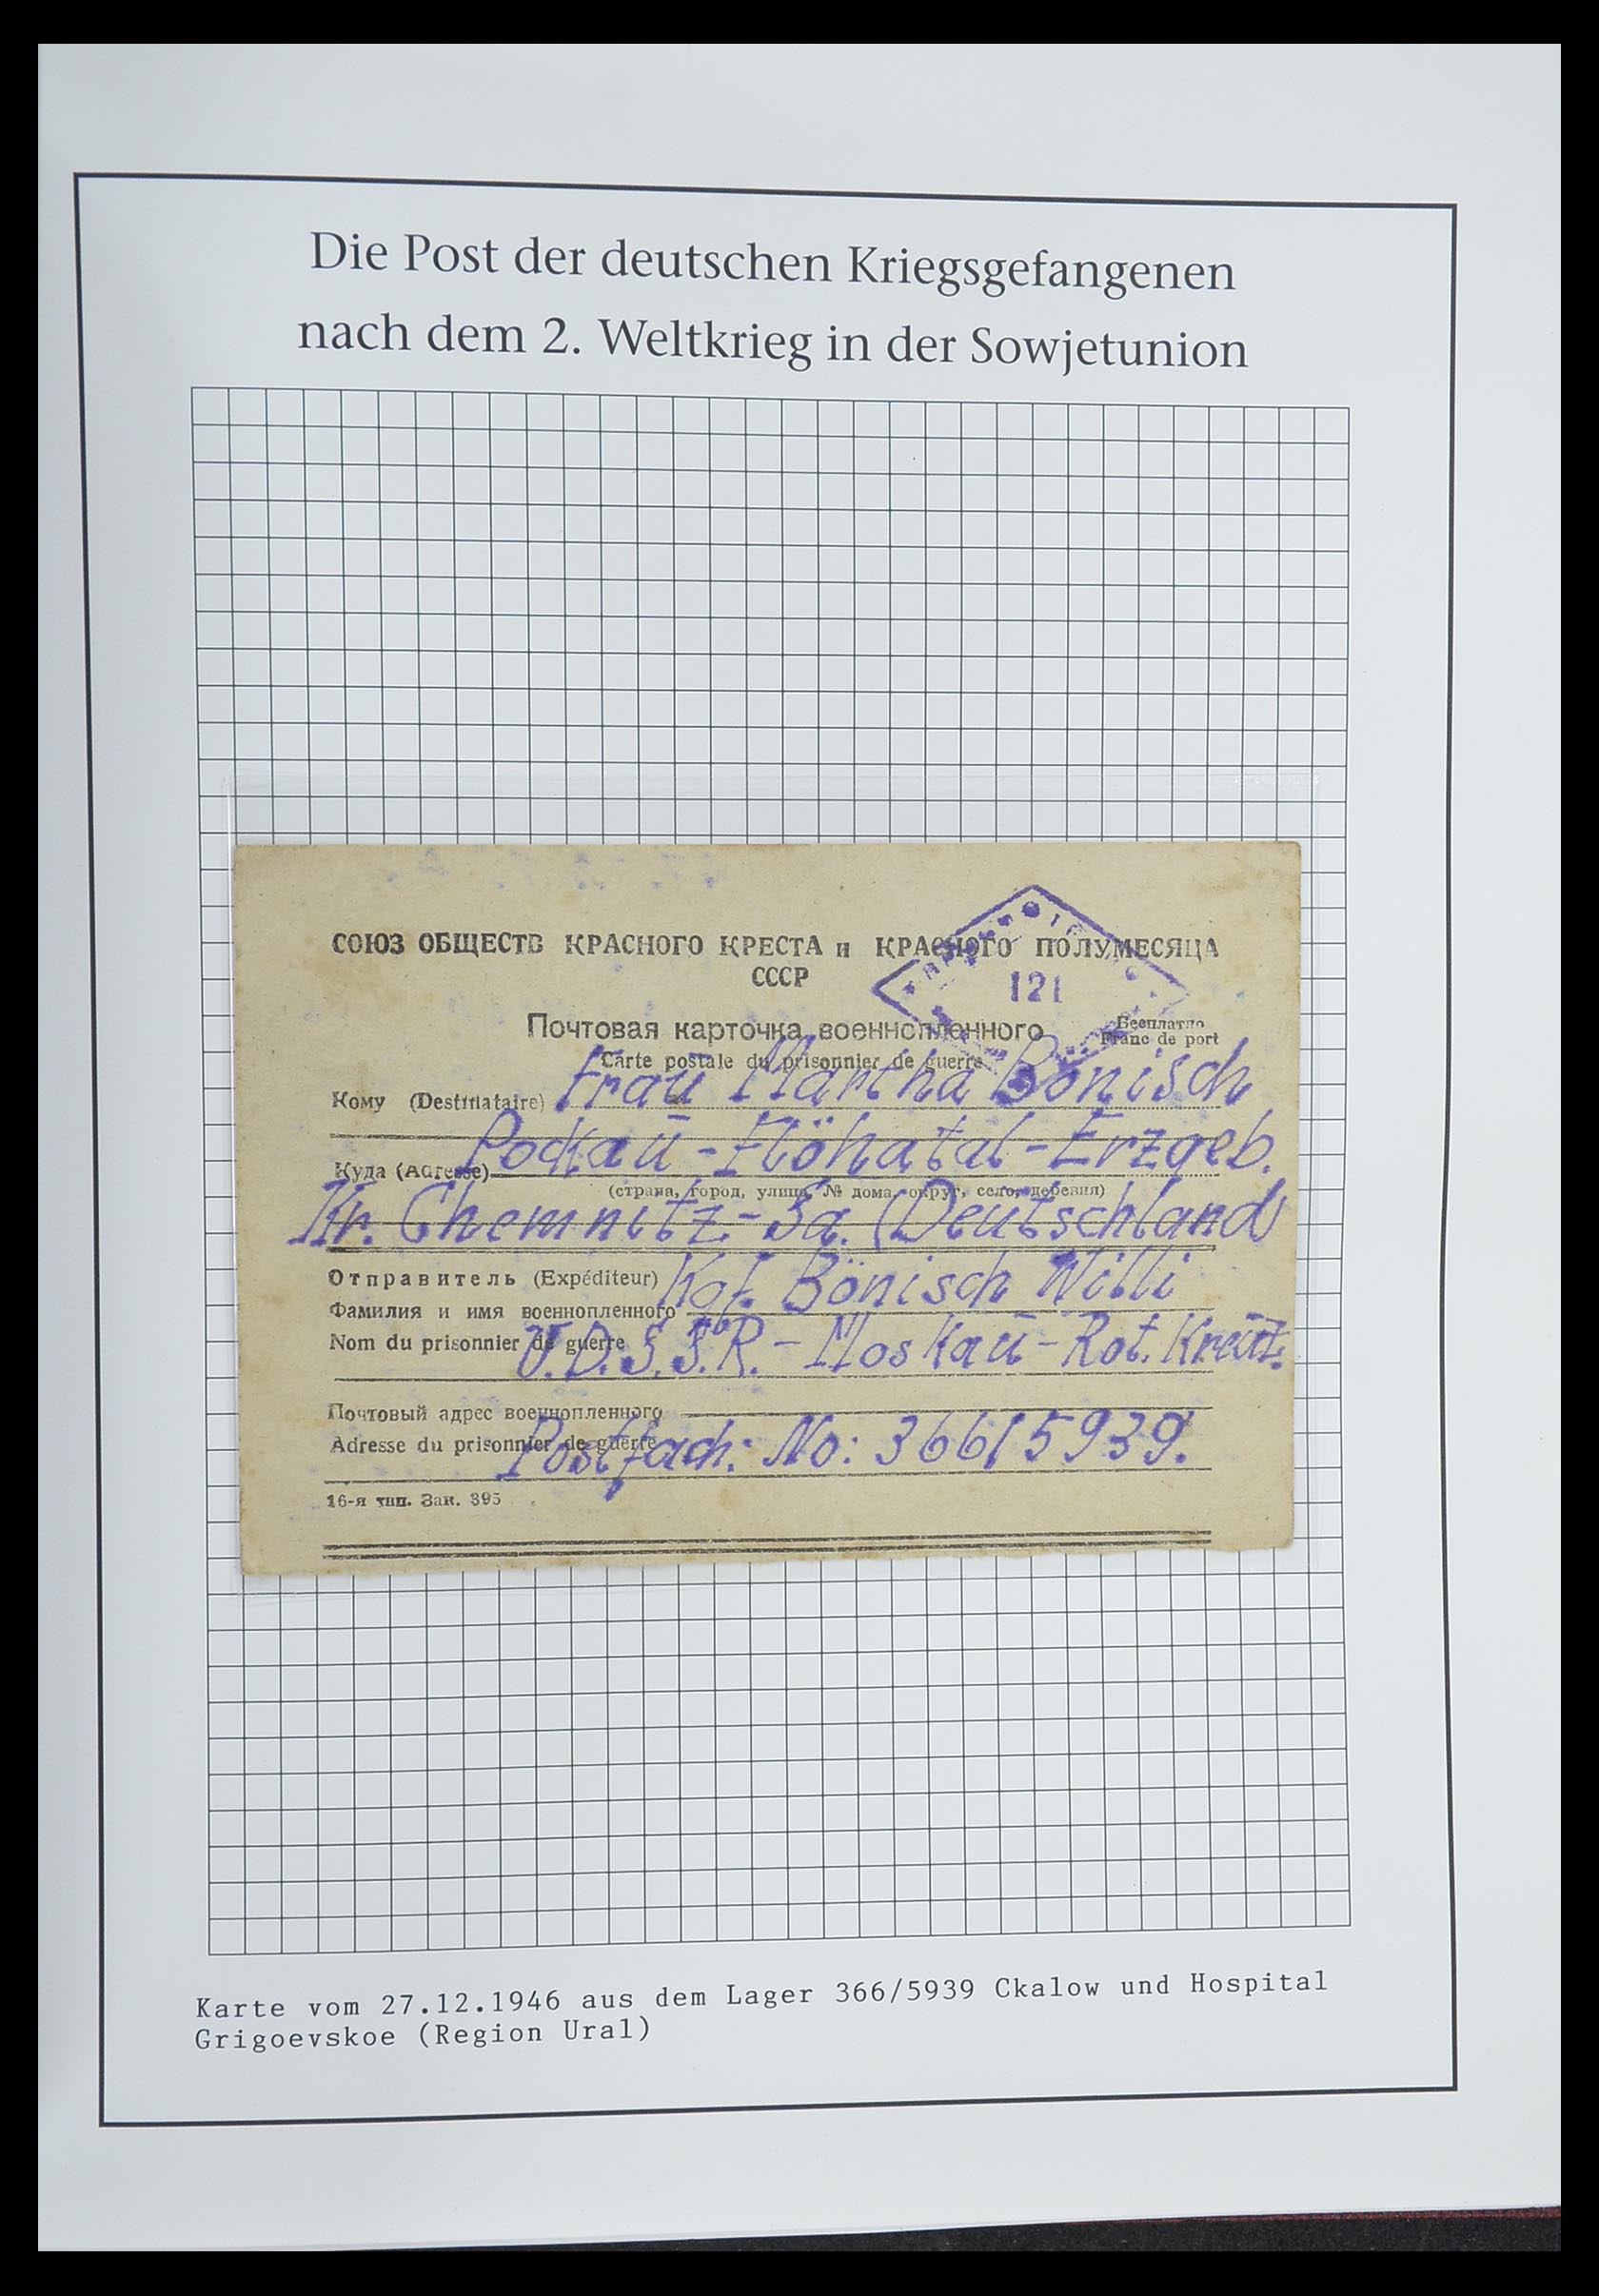 Die Post der deutschen Kriegsgefangenen
nach dem 2. Weltkrieg in der Sowjetunion
СОЮЗ ОБЩЕСТВ КРАСНОГО КРЕСТА и КРАСНОГО ПОЛУМЕСЯЦА
СССР
121
Почтовая карточка военнопленного
Бесплатно
Franc de port
Carte postale du prisonnier de guerre
Кому (Destinataire) Frau Martha Bönisch
Pockau-Flöhatal-Erzgeb.
Куда (Adresse)
(страна, город, улица, № дома, округ, село, деревня)
Kr. Chemnitz-Sa. (Deutschland)
Отправитель (Expéditeur) Kgf. Bönisch Willi
Фамилия и имя военнопленного
Nom du prisonnier de guerre U.D.S.S.R.-Moskau-Rot. Kreuz.
Почтовый адрес военнопленного
Adresse du prisonnier de guerre Postfach: No: 366/5939.
16-я тип. Зак. 395
Karte vom 27.12.1946 aus dem Lager 366/5939 Ckalow und Hospital
Grigoevskoe (Region Ural)